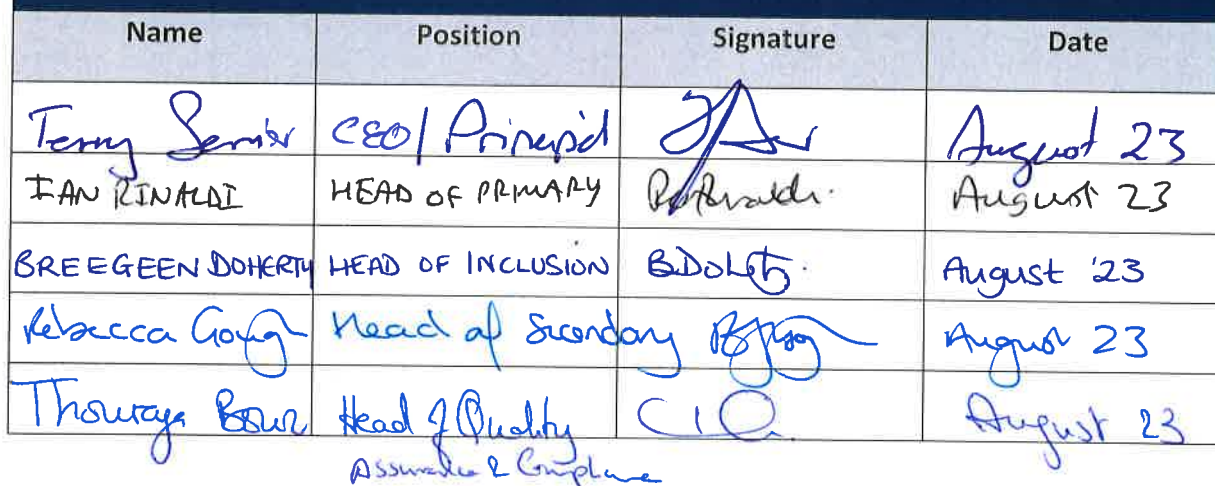 Name Position Signature Date
Terry Senior CEO/ Principal August 23
IAN RINALDI HEAD OF PRIMARY August 23
BREEGEEN DOHERTY HEAD OF INCLUSION BDoherty. August '23
Rebecca Gough Head of Secondary August 23
Thouraya Head of Quality August 23
Assurance & Compliance